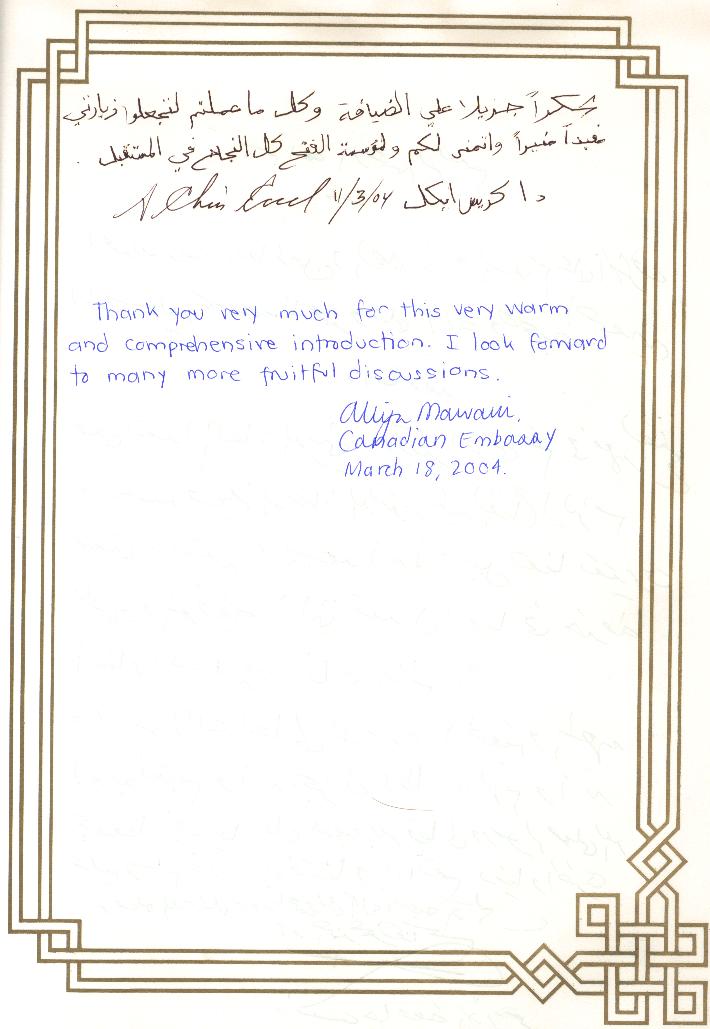 شكراً جزيلا على الضيافة وكل ما عملتم لتجعلوا زيارتي
مفيداً مثيراً واتمنى لكم ولمؤسسة الفقح كل النجاح في المستقبل .
د ا كريس ايكل 11/3/04
Thank you very much for this very warm
and comprehensive introduction. I look forward
to many more fruitful discussions.
Mawani,
Canadian Embassy
March 18, 2004.